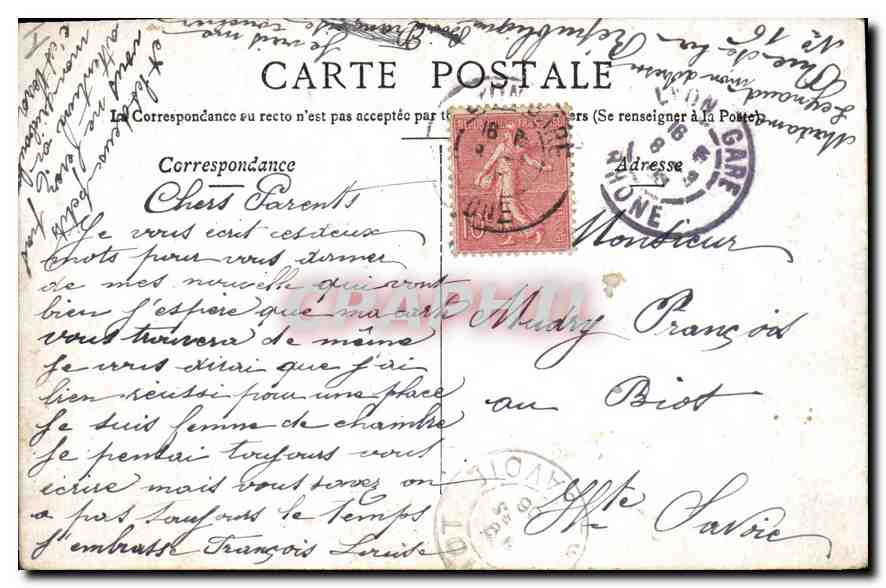 CARTE POSTALE
La Correspondance au recto n'est pas acceptée par to ers (Se renseigner à la Poste).
Correspondance
Adresse
Chers Parents
Je vous ecrit ces deux
mots pour vous donner
de mes nouvelle qui vont
bien j'espère que ma carte
vous trouvera de même
Je vous dirai que j'ai
bien réussi pour une place
Je suis femme de chambre
Je pensai toujours vous
écrire mais vous savez on
a pas toujours le temps
J'embrasse François Louise
et les deux petits
vous me ferez
Monsieur
Mudry François
au Biot
Hte Savoie
mon adresse
Madame
Rue de la République
No 16
LYON GARE
RHONE
16
8
10
SAVOIE
CPAPHIL